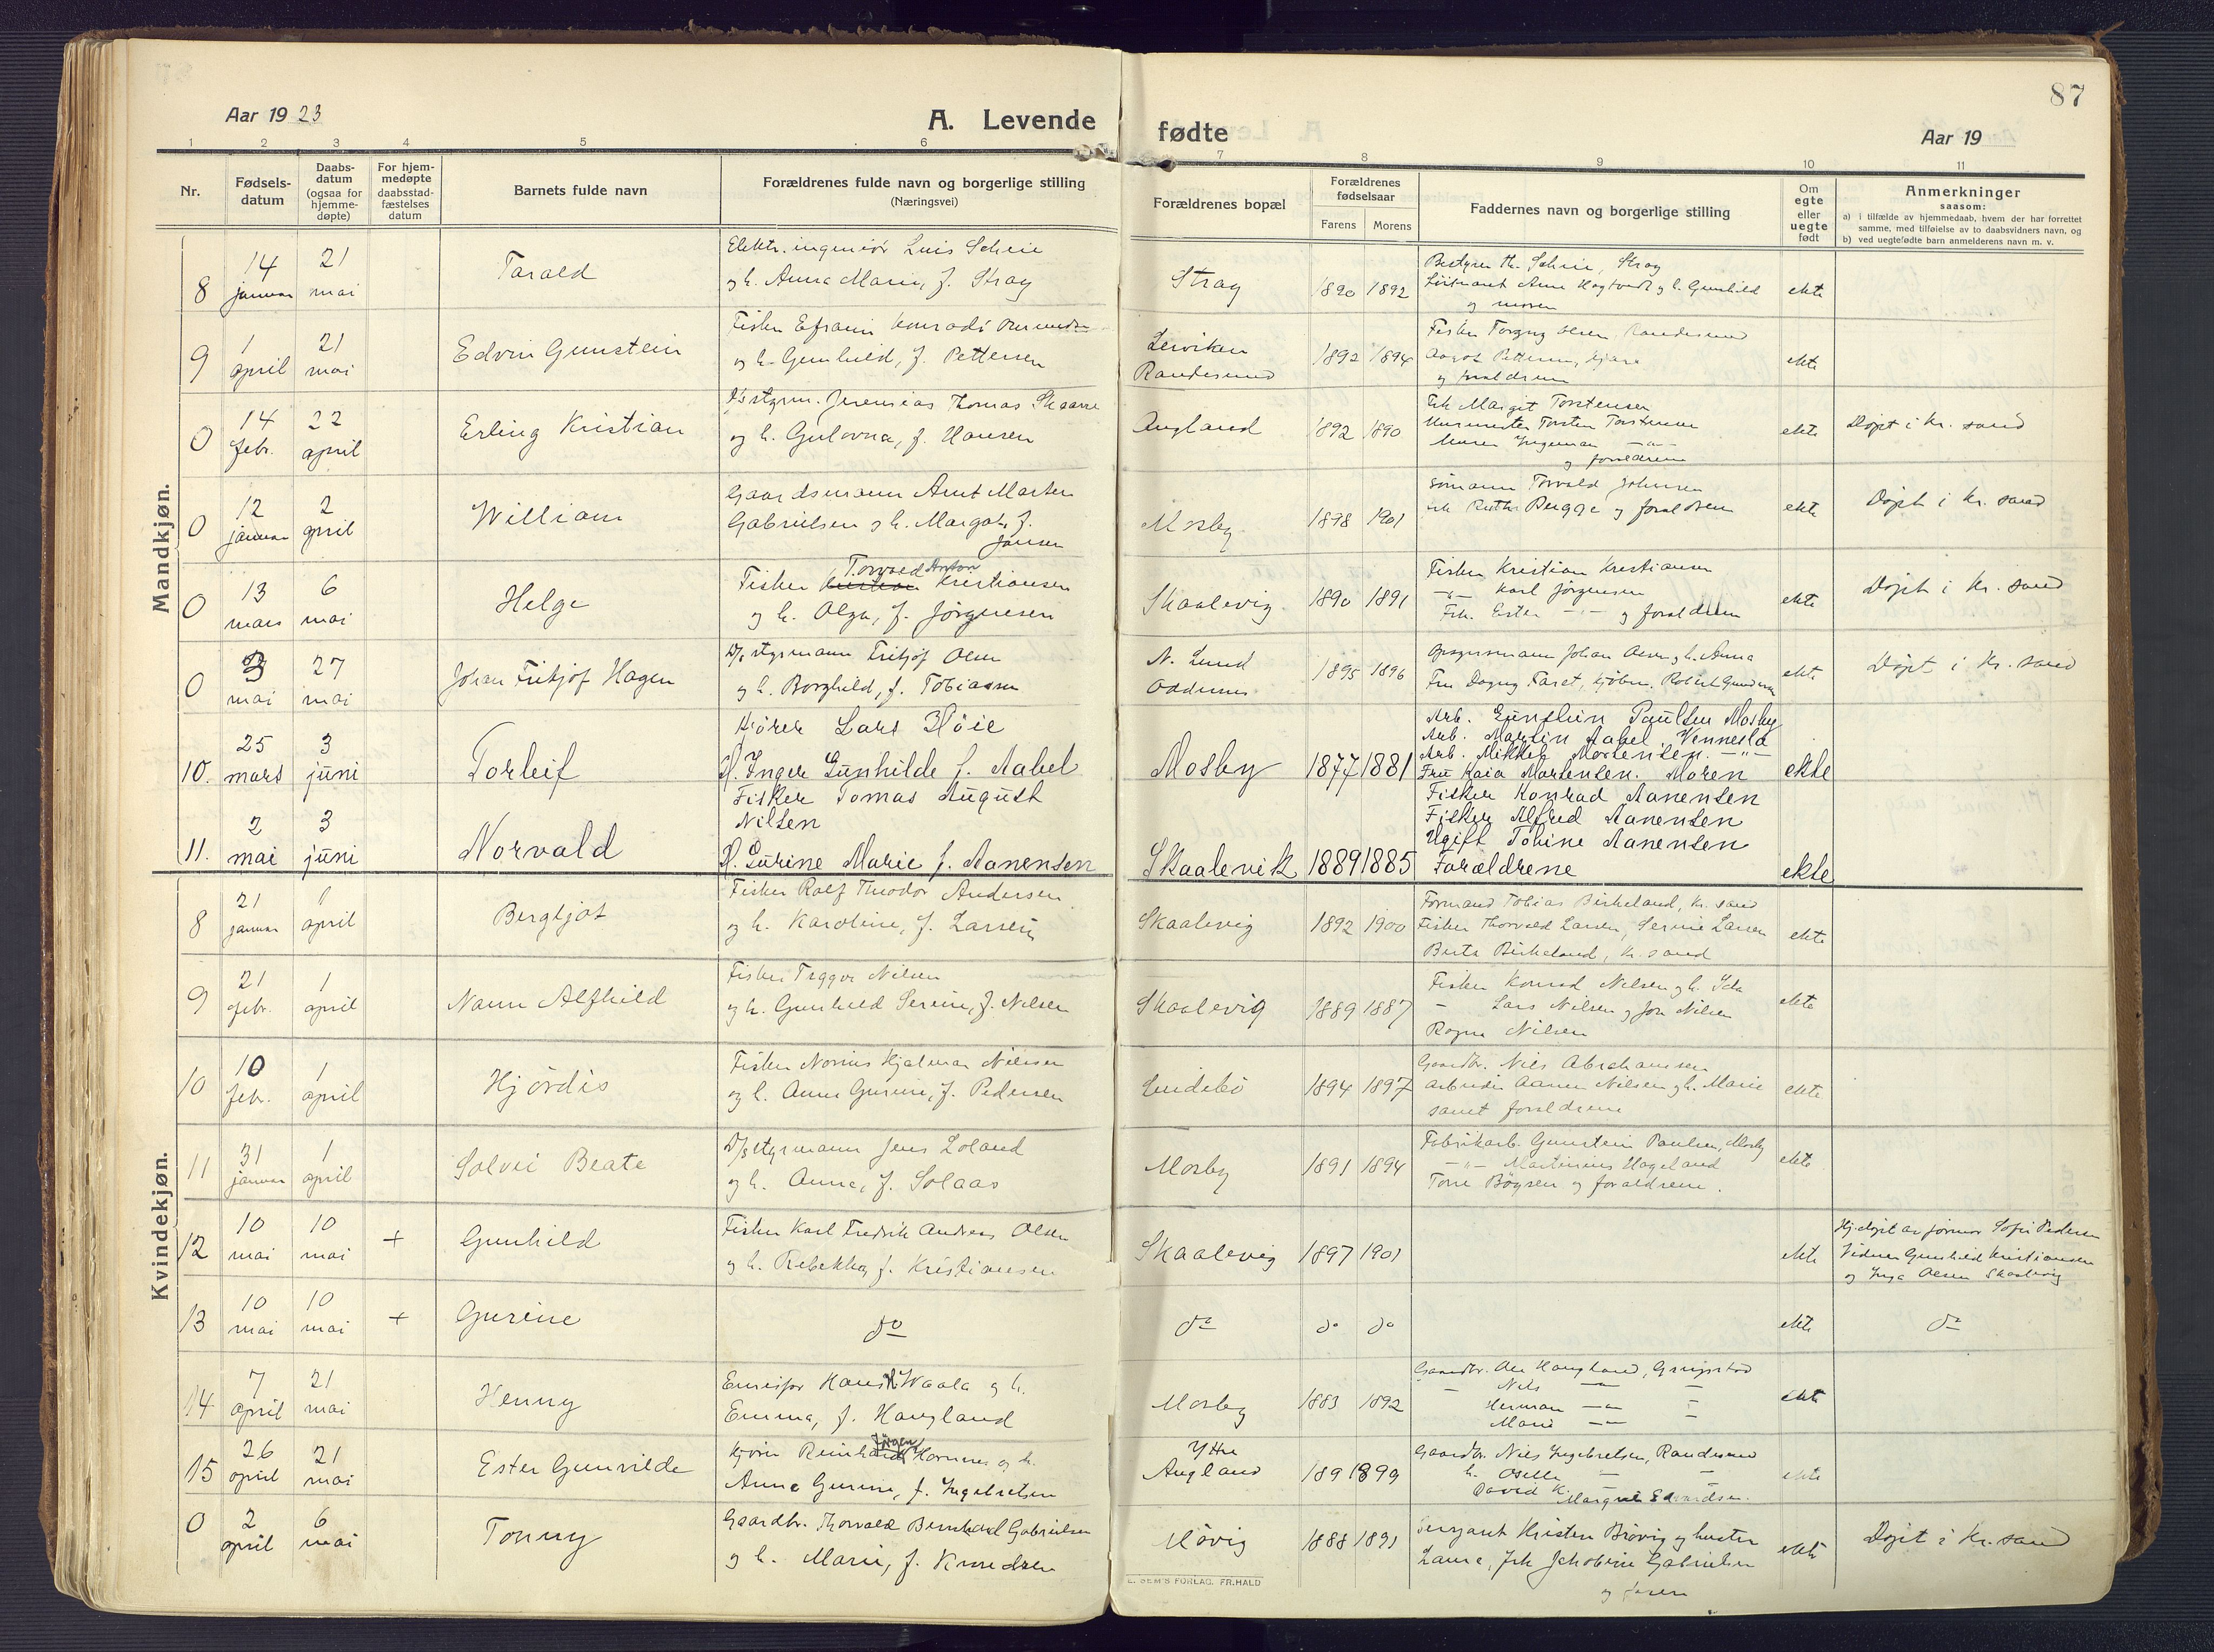 87
Aar 1923
A. Levende
fødte
Aar 19
1 2 3 4 5 6 7 8 9 10 11
Nr.
Fødsels-
datum
Daabs-
datum
(ogsaa for
hjemme-
døpte)
For hjem-
medøpte
daabsstad-
fæstelses
datum
Barnets fulde navn
Forældrenes fulde navn og borgerlige stilling
(Næringsvei)
Forældrenes bopæl
Forældrenes
fødselsaar
Farens
Morens
Faddernes navn og borgerlige stilling
Om
egte
eller
uegte
født
Anmerkninger
saasom:
a) i tilfælde av hjemmedaab, hvem der har forrettet
samme, med tilføielse av to daabsvidners navn, og
b) ved uegtefødte barn anmelderens navn m. v.
Mandkjøn.
8 14 januar 21 mai Tarald
Elektr. ingeniør Luis Scheie
og h. Anna Marie, f. Stray
Stray 1890 1892
Bestyrer Th. Scheie, Stray
og h. Gunhild
og moren
ekte
9 1 april 21 mai Edvin Gunstein
Fisker Efraim Konradi
og h. Gunhild, f. Pettersen
Randesund 1892 1894
Fisker Torgny Olsen, Randesund
Aagot Pettersen,
og forældrene
ekte
0 14 febr. 22 april Erling Kristian
Jeremias Thomas Skaare
og h. Gulovna, f. Hansen
Augland 1892 1890
Frk Margit Torstensen
Murmester Torsten Torstensen
Maren Ingeman -"-
og forældrene
ekte
Døpt i Kr. sand
0 12 januar 2 april William
Gaardsmann Arnt Marten
Gabrielsen og h. Margot, f.
Jansen
Mosby 1898 1901
Sömann Torvald Johnsen
frk Ruth Berge og forældrene
ekte
Döpt i Kr. sand
0 13 mars 6 mai Helge
Torvald Anton
Fisker Kristian Kristiansen
og h. Olga, f. Jörgensen
Skaalevig 1890 1891
Fisker Kristian Kristiansen
-"- Karl Jörgensen
Frk. Ester -"- og forældrene
ekte
Döpt i Kr. sand
0 3 mai 27 mai Johan Fritjof Hagen
D/s styrmann Fritjof Olsen
og h. Borghild, f. Tobiassen
N. Lund
Oddernes 1895 1896
Johan Olsen og h. Anna
Fru Dagny Faret, Robert Gundersen
ekte
Döpt i Kr. sand
10. 25 mars 3 juni Torleif
Kjörer Lars Höie
H. Inger Gunhilde f. Aabel
Mosby 1877 1881
Arb. Gunstein Paulsen Mosby
Arb. Martin Aabel Vennesla
Arb. Mikkel Mortensen. -"-
Fru Kaia Mortensen. Moren
ekte
11. 2 mai 3 juni Norvald
Fisker Tomas August
Nilsen
H. Gurine Marie f. Aanensen
Skaalevik 1889 1885
Fisker Konrad Aanensen
Fisker Alfred Aanensen
Ugift Tobine Aanensen
Forældrene
ekte
Kvindekjøn.
8 21 januar 1 april Bergljot
Fisker Rolf Theodor Andersen
og h. Karoline, f. Larsen
Skaalevig 1892 1900
Formand Tobias Birkeland, Kr. sand
Fisker Thorvald Larsen, Serine Larsen
Berta Birkeland, Kr. sand
ekte
9 21 febr. 1 april Nann Alfhild
Fisker Trygve Nilsen
og h. Gunhild Serine, f. Nilsen
Skaalevig 1889 1887
Fisker Konrad Nilsen og h. Ida
- Lars Nilsen og Jon Nilsen
Ragna Nilsen
ekte
10 10 febr. 1 april Hjördis
Fisker Normis Hjalmar Nilsen
og h. Anna Gurine, f. Pedersen
Lindebö 1894 1897
Gaardbr. Nils Abrahamsen
Arbeider Aanen Nilsen og h. Marie
samt forældrene
ekte
11 31 januar 1 april Solvei Beate
D/s styrmann Jens Loland
og h. Anna, f. Solaas
Mosby 1891 1894
Fabrikarb. Gunstein Paulsen, Mosby
-"- Martinius Hageland
Tone Böysen og forældrene.
ekte
12 10 mai 10 mai + Gunhild
Fisker Karl Fredrik Andreas Olsen
og h. Rebekka, f. Kristiansen
Skaalevig 1897 1901
ekte
Hj. döpt av jormor Sofie Pedersen
Vidner Gunhild Kristiansen
og Inga Olsen Skaalevig
13 10 mai 10 mai + Gurine
do
do do do
ekte
do
14 7 april 21 mai Henny
Hans Waala og h.
Emma, f. Haugland
Mosby 1883 1892
Gaardbr. Ole Haugland, Grippstad
- Nils -"- -
Herman -"- -
Marie -"-
ekte
15 26 april 21 mai Ester Gunvilde
Jörgen
Kjörer Reinhardt Hornnes og h.
Anna Gurine, f. Ingebretsen
Ytre
Augland 1891 1899
Gaardbr. Nils Ingebretsen, Randesund
h. Oselle - -
David K. -
Margrit Edvardsen.
ekte
0 2 april 6 mai Tonny
Gaardbr. Thorvald Bernhard Gabrielsen
og h. Marie, f. Knudsen
Mövig 1888 1891
Sergeant Kristen Brövig og hustru
Laura, Frk Jakobine Gabrielsen
og faren
ekte
Döpt i Kr. sand
E. SEM'S FORLAG. FR.HALD